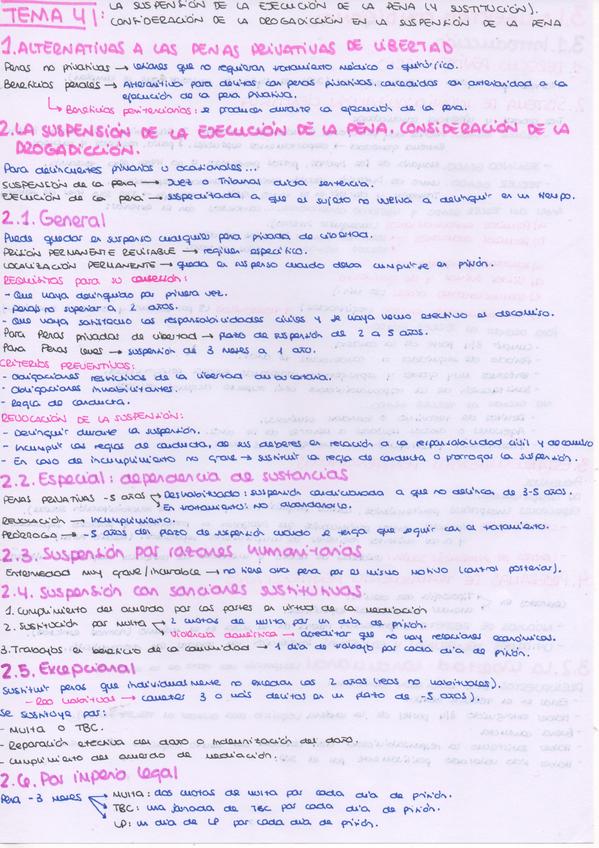 TEMA 4: LA SUSPENSIÓN DE LA EJECUCIÓN DE LA PENA (Y SUSTITUCIÓN).
CONSIDERACIÓN DE LA DROGADICCIÓN EN LA SUSPENSIÓN DE LA PENA
1. ALTERNATIVAS A LAS PENAS PRIVATIVAS DE LIBERTAD
Penas no privativas → lesiones que no requieran tratamiento médico o quirúrgico.
Beneficios penales → Alternativa para delitos con penas privativas, concedidas con anterioridad a la
ejecución de la pena privativa.
↳ Beneficios penitenciarios: se producen durante la ejecución de la pena.
2. LA SUSPENSIÓN DE LA EJECUCIÓN DE LA PENA. CONSIDERACIÓN DE LA
DROGADICCIÓN.
Para delincuentes primarios u ocasionales...
SUSPENSIÓN de la pena → Juez o Tribunal dicta sentencia.
EJECUCIÓN de la pena → supeditada a que el sujeto no vuelva a delinquir en un tiempo.
2.1. General
Puede quedar en suspenso cualquier pena privada de libertad.
PRISIÓN PERMANENTE REVISABLE → régimen específico.
LOCALIZACIÓN PERMANENTE → queda en suspenso cuando deba cumplirse en prisión.
REQUISITOS para su concesión:
- Que haya delinquido por primera vez.
- pena/s no superior a 2 años.
- Que haya satisfecho las responsabilidades civiles y se haya hecho efectivo el decomiso.
Para Penas privadas de libertad → plazo de suspensión de 2 a 5 años.
Para Penas leves → suspensión de 3 meses a 1 año.
CRITERIOS PREVENTIVOS:
- Obligaciones restrictivas de la libertad ambulatoria.
- Obligaciones inhabilitantes.
- Regla de conducta.
REVOCACIÓN DE LA SUSPENSIÓN:
- Delinquir durante la suspensión.
- Incumplir las reglas de conducta, de sus deberes en relación a la responsabilidad civil y decomiso
- En caso de incumplimiento no grave → sustituir la regla de conducta o prorrogar la suspensión.
2.2. Especial: dependencia de sustancias
PENAS PRIVATIVAS -5 años → Deshabituado: suspensión condicionada a que no delinca de 3-5 años.
→ En tratamiento: No abandonarlo.
REVOCACIÓN → Incumplimiento.
PRÓRROGA → -5 años del plazo de suspensión cuando se tenga que seguir con el tratamiento.
2.3. Suspensión por razones humanitarias
Enfermedad muy grave/incurable → no tiene otra pena por el mismo motivo (control posterior).
2.4. Suspensión con sanciones sustitutivas
1. Cumplimiento del acuerdo por las partes en virtud de la mediación
2. Sustitución por multa → 2 cuotas de multa por un día de prisión.
→ Violencia doméstica → acreditar que no hay relaciones económicas.
3. Trabajos en beneficio de la comunidad → 1 día de trabajo por cada día de prisión.
2.5. Excepcional
Sustituir penas que individualmente no excedan los 2 años (reos no habituales).
- Reo habitual → cometer 3 o más delitos en un plazo de -5 años).
Se sustituye por:
- Multa o TBC.
- Reparación efectiva del daño o indemnización del daño.
- cumplimiento del acuerdo de mediación.
2.6. Por imperio legal
Pena -3 meses → Multa: dos cuotas de multa por cada día de prisión.
→ TBC: una jornada de TBC por cada día de prisión.
→ LP: un día de LP por cada día de prisión.